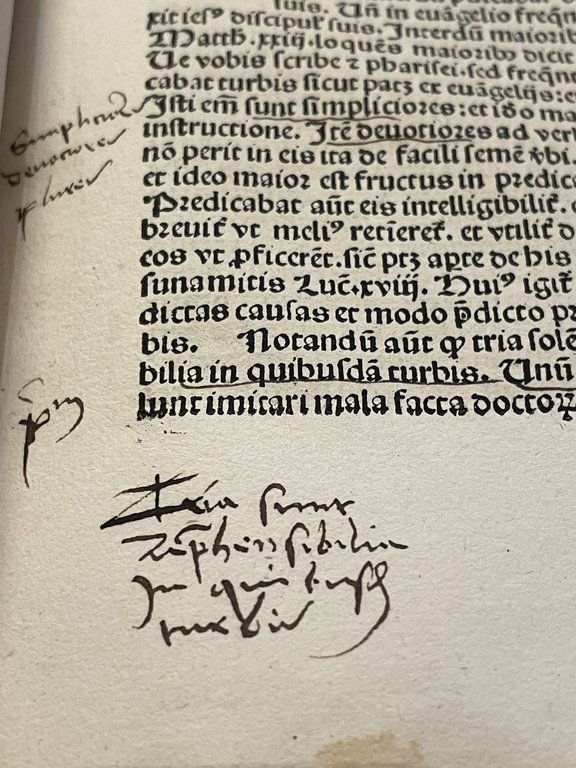 suis. Uñ in euãgelio freq̃n
xit iesꝰ discipuľ suis. Interdũ maiorib
Matth.xxiij.loquẽs maioribꝰ dicit
Ue vobis scribe ⁊ pharisei.sed freq̃n
cabat turbis sicut patꝫ et euãgelijs: et
Isti em̃ sunt simpliciores: et iõo ma
instructione. Itẽ deuotiores ad ver
nõ perit in eis ita de facili semẽ v̉bi.
et ideo maior est fructus in predica
Predicabat aũt eis intelligibiliť.
breuiť vt meliꝰ retineret̉. et vtiliť d
eos vt ꝓficerẽt.sic̃ ptꝫ apte de his
sunamitis Luc̃.xviij. Huiꝰ igiť
dictas causas et modo p̃dicto pr
bis. Notandũ aũt ꝙ tria solẽ
bilia in quibusdã turbis. Unũ
lunt imitari mala facta doctoꝝ
deuotiores
p̃m
Tria sunt
rep̃hensibilia
In quibusd
turbis